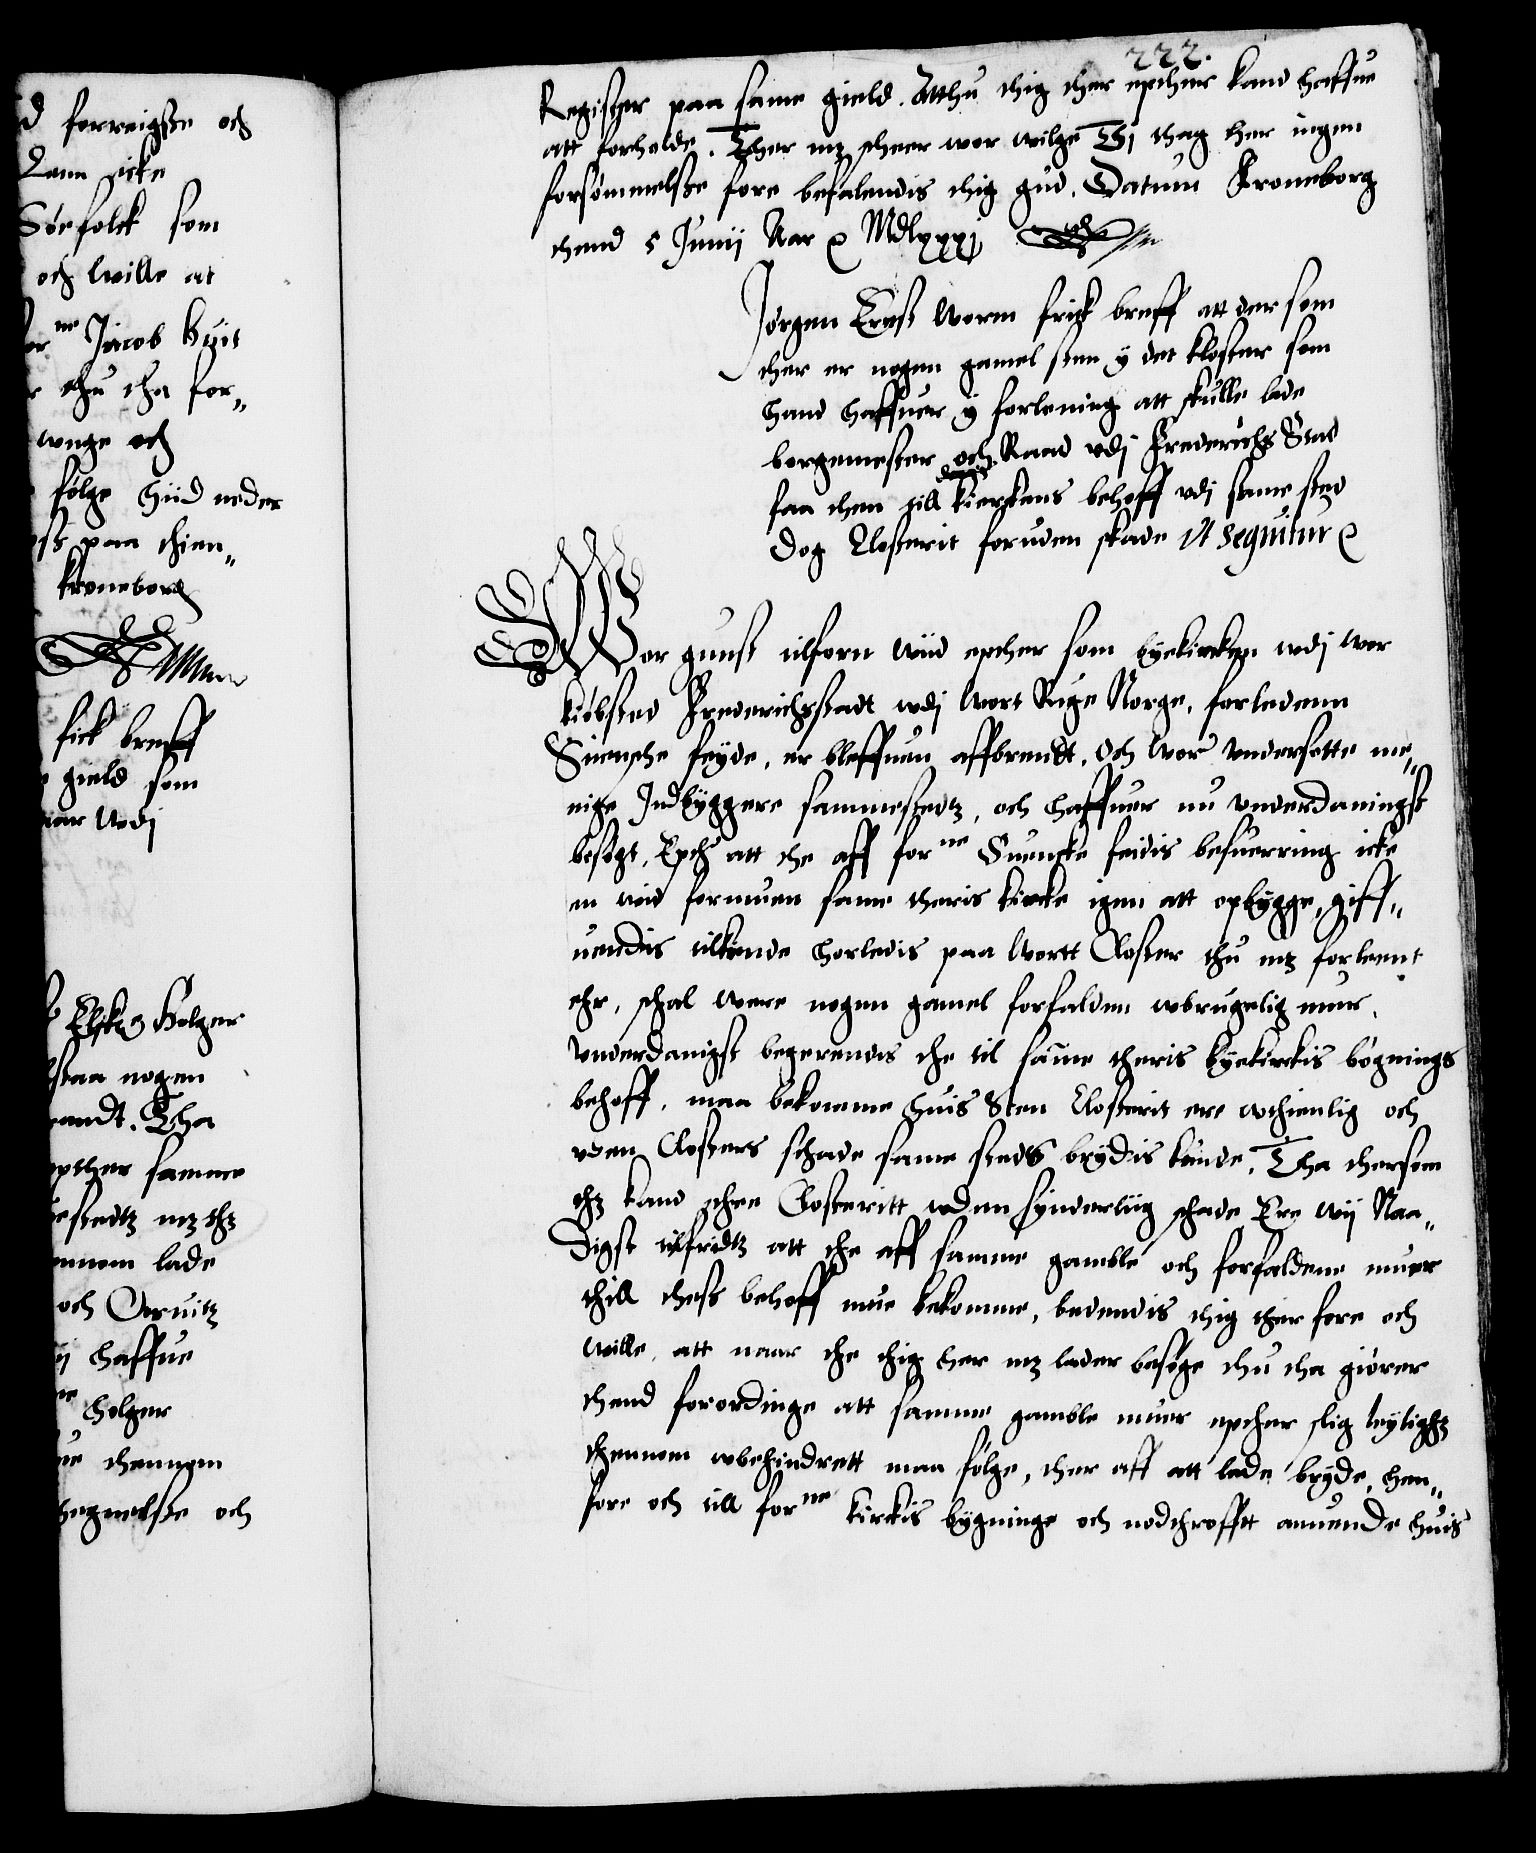 d forreigße och
Dann icke
Søefolck som
och wille at
ne Jacob Huit
thu tha for„
wnge och
følge hiid neder
paa thien„
kroneborg
fick breff
gield som
wdj
Elsk Holger
staa nogen
andt. Tha
epther samme
estedtz mz thz
ennom lade
och Oruitz
ij haffue
ne Holger
ue thennom
hegnelsse och
222.
Register paa same gield. Atthu thig ther epther kand haffue
att forholde. Ther mz scheer wor wilge Thj thag her ingen
forsømmelsse fore befalendis thig gud. Datum Kroneborg
thend 5 Junij Aar &c Mdlxxxj
Jørgen Ernst Worm fick breff att der som
ther er nogen gamel sten y det kloster som
hand haffuer y forlening att skulle lade
borgemester och Raad vdj Frederichs Stad
faa them till kierckens behoff vdj same sted
Dog Closterit foruden skade Vt sequitur &c
Wor gunst tilforn wiid epther som byekircken wdj wor
kiøbsted Frederichstadt wdj wort Rige Norge, forledenn
Suensche feyde, er bleffuen affbrendt. Och wor vndersotte me„
nige Indbyggere sammestedtz, och haffuer nu vnderdaningst
besøgt, Epth att the aff forne Suenske feidis besuerring icke
en wid formuen same theris kircke igen att opbygge, giff„
uendis tilkiende horledis paa wortt Closter thu mz forleent
ehr, schal were nogen gamel forfalden wbrugelig mur,
vnderdanigst begerendis the til same theris byekirckis bøgnings
behoff, maa bekomme huis Sten Closterit ere wthienlig och
vden Closters schade same steds brydis kunde. Tha thersom
thz kand schee Closteritt wden synderliig schade Ere wij Naa„
digst tilfridtz att the aff samme gamble och forfaldene muer
thill thess behoff mue bekomme, bedendis thig ther fore och
wille, att naar the thig her mz lader besøge thu tha giører
thend forordinge att samme gamble muer epther slig leylighz
thennom wbehindrett maa følge, ther aff att lade bryde, hen„
fore och till forne kirckis bygninge och nodtrofftt anuende huis